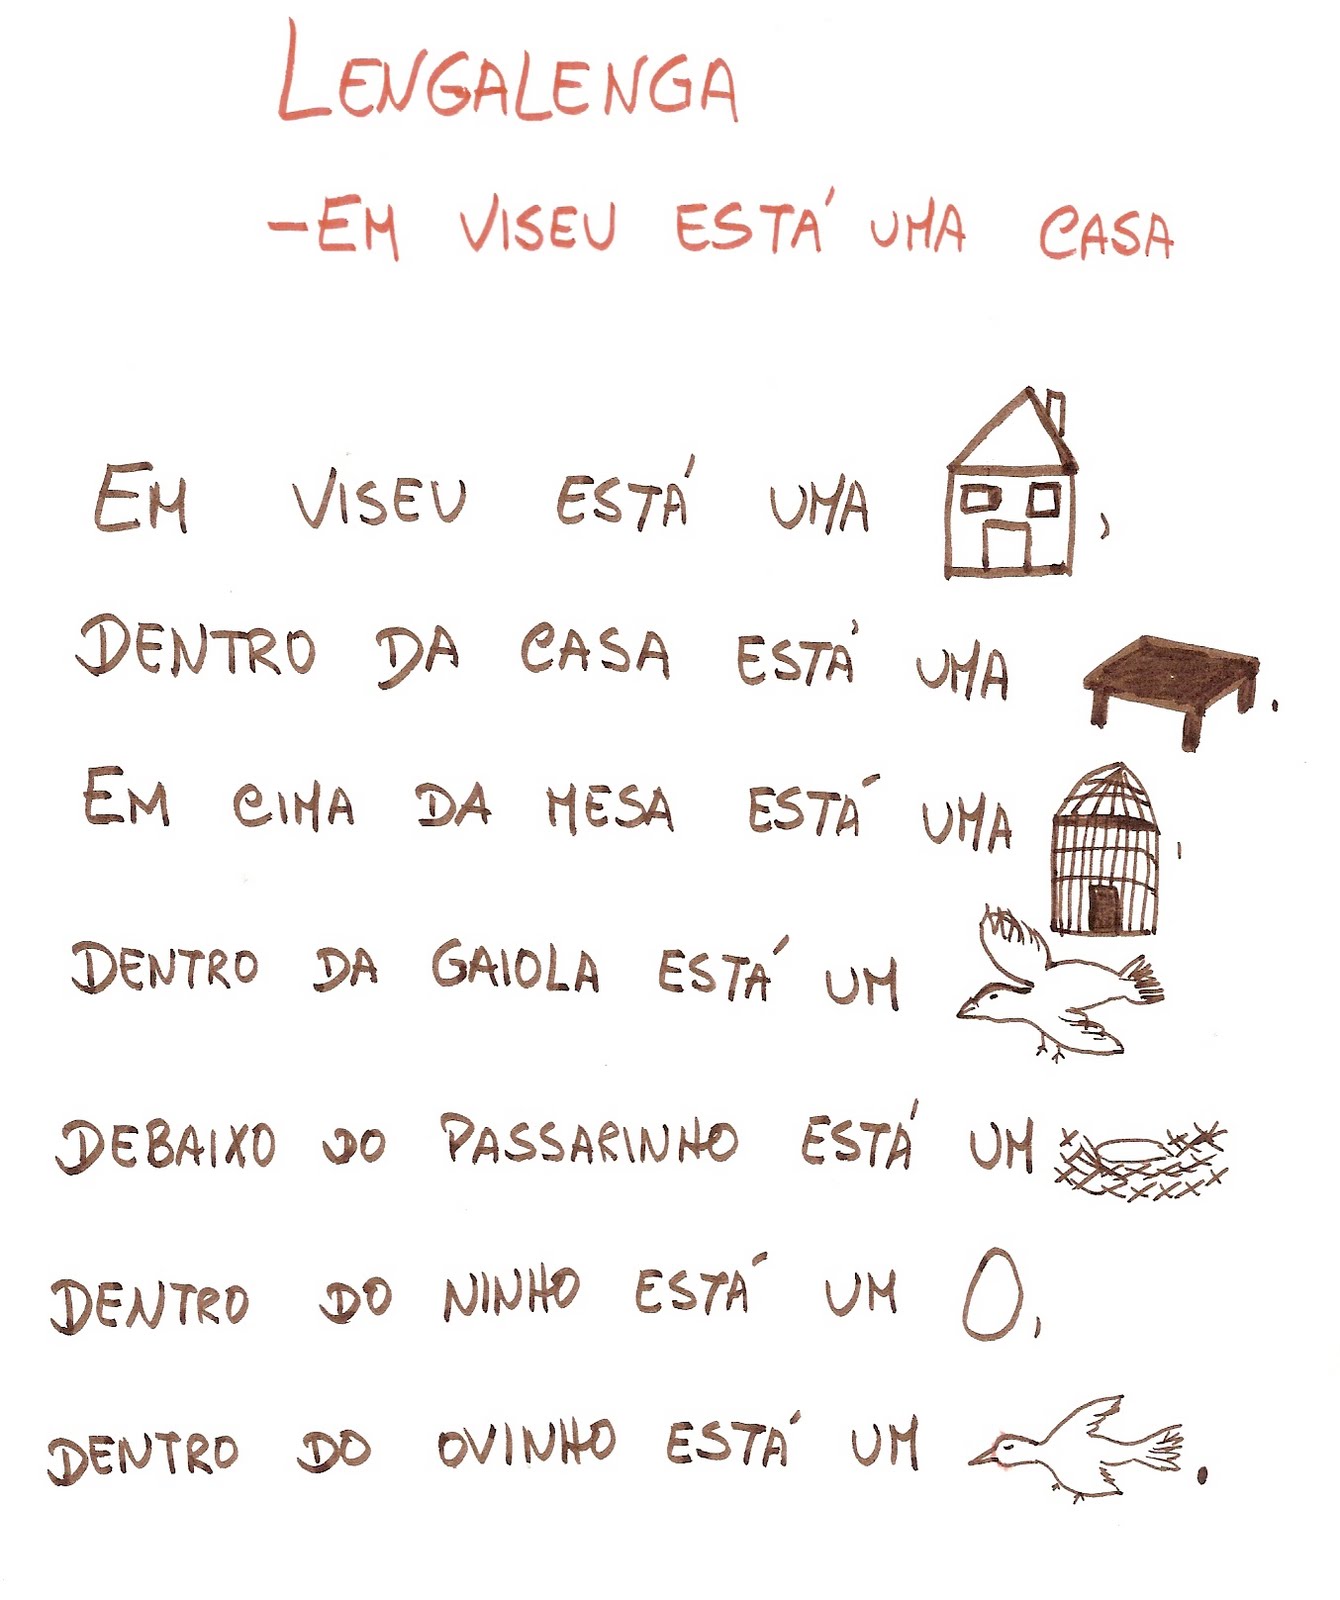 LENGALENGA
-EM VISEU ESTÁ UMA CASA
EM VISEU ESTÁ UMA ,
DENTRO DA CASA ESTÁ UMA .
EM CIMA DA MESA ESTÁ UMA ,
DENTRO DA GAIOLA ESTÁ UM
DEBAIXO DO PASSARINHO ESTÁ UM
DENTRO DO NINHO ESTÁ UM ,
DENTRO DO OVINHO ESTÁ UM .